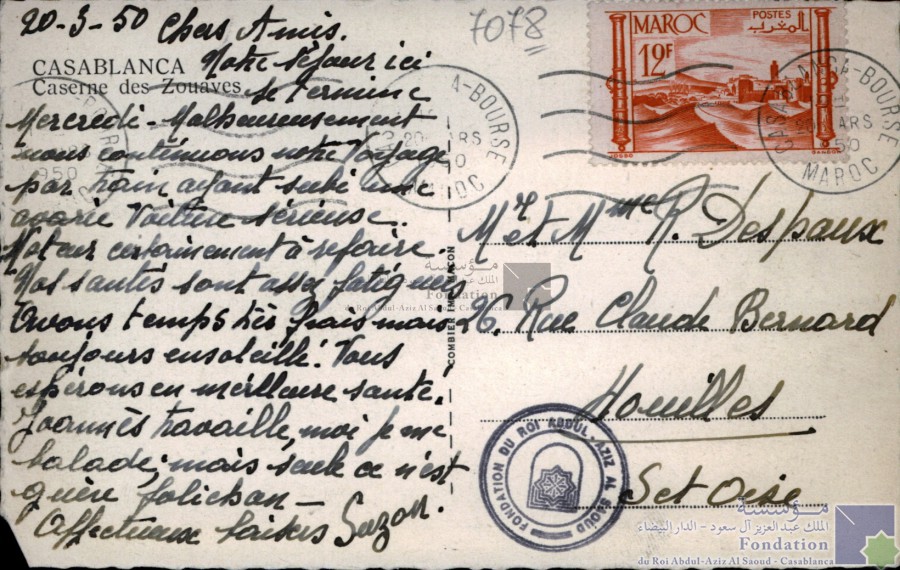 20-3-50 Chers Amis.
7078
CASABLANCA
Caserne des Zouaves
Notre séjour ici
se termine
Mercredi - Malheureusement
nous continuons notre Voyage
par train ayant subi une
avarie Voiture sérieuse.
Moteur certainement à refaire.
Nos santés sont assez fatiguées
Avons temps très frais mais
toujours ensoleillé. Vous
espérons en meilleure santé.
Joannès travaille, moi je me
balade, mais seule ce n'est
guère folichon -
Affectueux baisers Suzon.
COMBIER IMP. MACON
MAROC
POSTES
المغرب
12F
CASABLANCA-BOURSE
20 MARS
50
MAROC
Mr et Mme R. Despaux
26, Rue Claude Bernard
Houilles
S et Oise
FONDATION DU ROI ABDUL-AZIZ AL SAOUD
مؤسسة
الملك عبد العزيز آل سعود - الدار البيضاء
Fondation
du Roi Abdul-Aziz Al Saoud - Casablanca